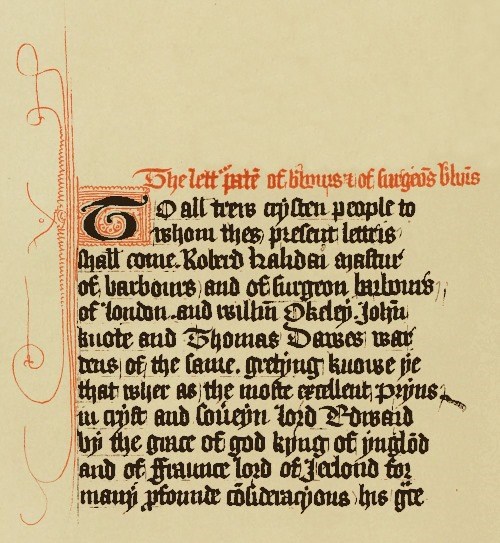 The lett patē of b̄bours & of surgeōs b̄buis
To all trew crysten people to
whom thes present lettris
shall come. Roberd halidai mastur
of barbours and of surgeon barbours
of london and willm Okeley John
knote and Thomas Dawes war
dens of the same. gretyng knowe ye
that wher as the moste excellent pryns
in cryst and soueyn lord Edward
by the grace of god kyng of ynglōd
and of Fraunce lord of Jerlond for
many pfounde cōsideracyons his gte